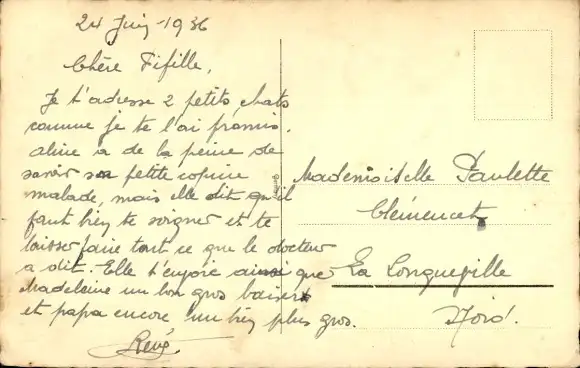 24 Juin 1936
Chère Fifille,
Je t'adresse 2 petits chats
comme je te l'ai promis.
Aline a de la peine de
savoir sa petite copine
malade, mais elle dit qu'il
faut bien te soigner et te
laisser faire tout ce que le docteur
a dit. Elle t'envoie ainsi que
Madeleine un bon gros baiser
et papa encore un bien plus gros.
René.
Mademoiselle Paulette
Clémencet
La Longueville